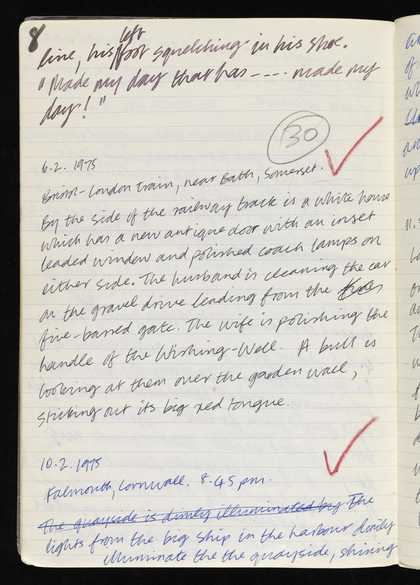 8
left
line, his foot squelching in his shoe.
"Made my day that has ---- made my
day!"
130
6.2. 1975
Bristol-London train, near Bath, Somerset.
By the side of the railway track is a white house
which has a new antique door with an inset
leaded window and polished coach lamps on
either side. The husband is cleaning the car
on the gravel drive leading from the
five-barred gate. The wife is polishing the
handle of the Wishing-Well. A bull is
looking at them over the garden wall,
sticking out its big red tongue.
10.2. 1975
Falmouth, Cornwall. 8.45 pm.
The quayside is dimly illuminated by The
lights from the big ship in the harbour dimly
illuminate the the quayside, shining